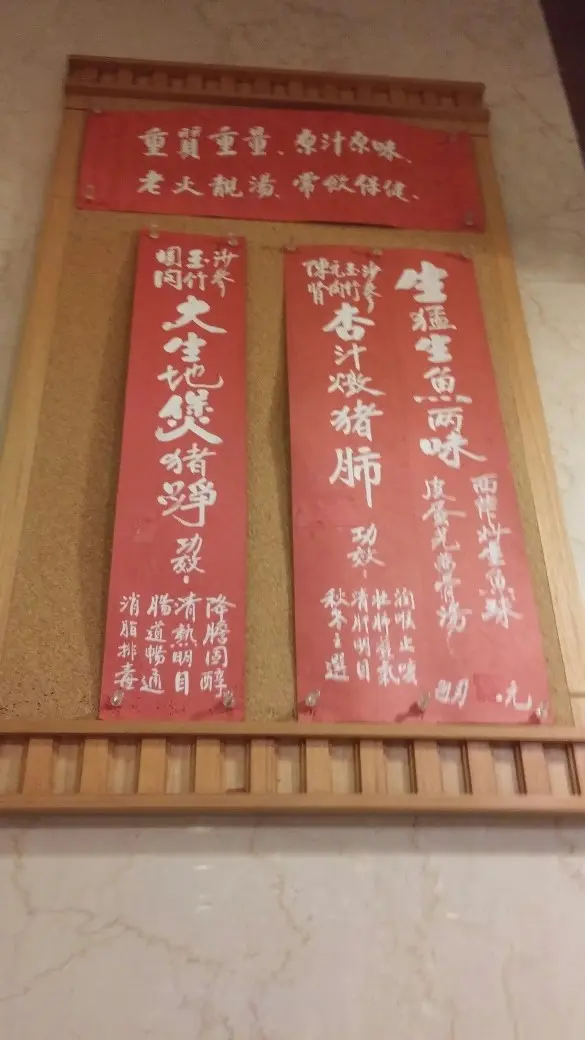 重質重量、原汁原味、
老火靚湯、常飲保健、
生猛生魚两味
西蘭炒生魚球
皮蛋芫茜骨湯
元
沙參
玉竹
元肉
陳腎
杏汁燉猪肺
功效
潤喉止咳
清肝明目
秋冬之選
沙參
玉竹
圓肉
大生地煲猪踭
功效
降膽固醇
清熱明目
腸道暢通
消脂排毒